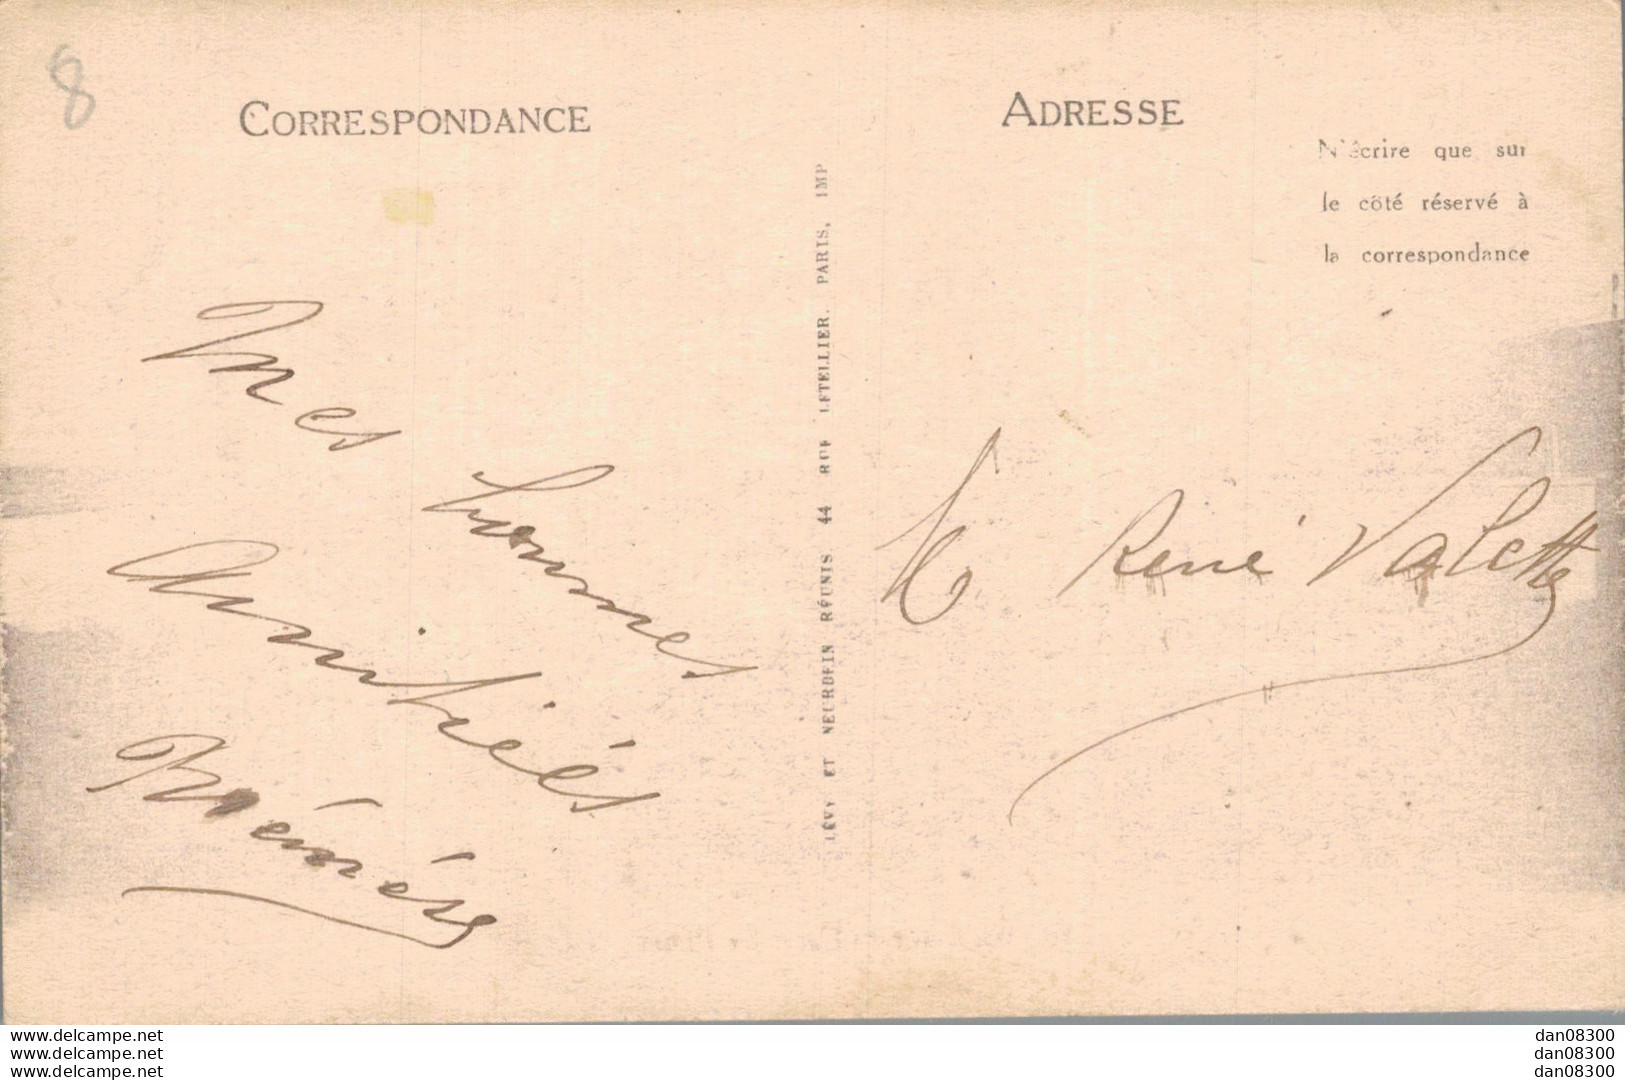 8
CORRESPONDANCE
ADRESSE
N'écrire que sur
le côté réservé à
la correspondance
LÉVY ET NEURDEIN RÉUNIS 44 RUE LETELLIER. PARIS, IMP
Mes
bonnes
Amitiés
René Valette
www.delcampe.net
www.delcampe.net
www.delcampe.net
dan08300
dan08300
dan08300